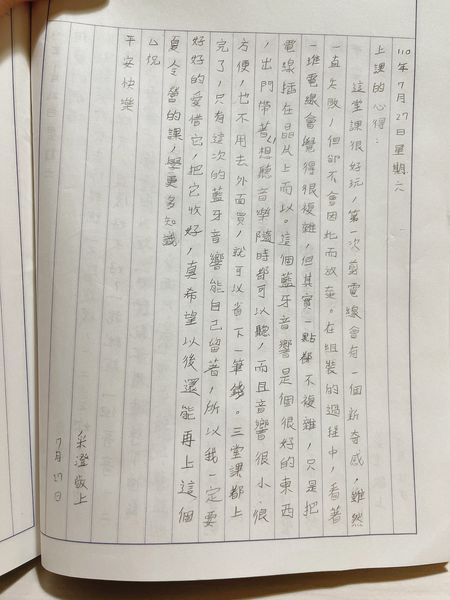 110年7月27日星期六
上課的心得：
這堂課很好玩，第一次剪電線會有一個新奇感，雖然
一直失敗，但卻不會因此而放棄。在組裝的過程中，看著
一堆電線會覺得很複雜，但其實一點都不複雜，只是把
電線插在晶片上而以。這個藍牙音響是個很好的東西
，出門帶著，想聽音樂隨時都可以聽，而且音響很小很
方便，也不用去外面買，就可以省下一筆錢。三堂課都上
完了，只有這次的藍牙音響能自己留著，所以我一定要
好好的愛惜它，把它收好，真希望以後還能再上這個
夏令營的課，學更多知識
祝
平安快樂
采澄敬上
7月27日